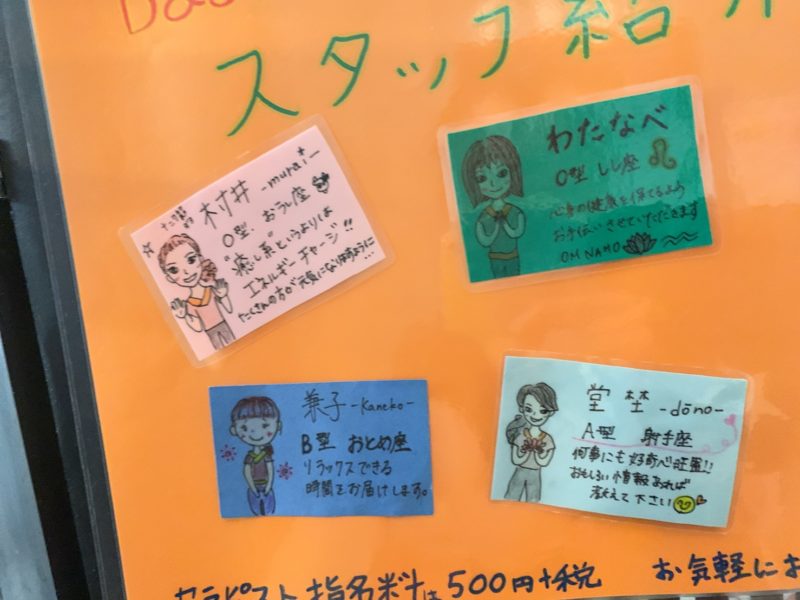 スタッフ紹介
村井 -murai-
O型 おうし座
"癒し系"というよりは
エネルギーチャージ!!
たくさんの方が元気になります様に...
わたなべ
O型 しし座
心身の健康を保てるよう
お手伝いさせていただきます
OM NAMO
兼子 -Kaneko-
B型 おとめ座
リラックスできる
時間をお届けします。
堂埜 -dōno-
A型 射手座
何事にも好奇心旺盛!!
おもしろい情報あれば
教えて下さい
セラピスト指名料は500円+税
お気軽にお